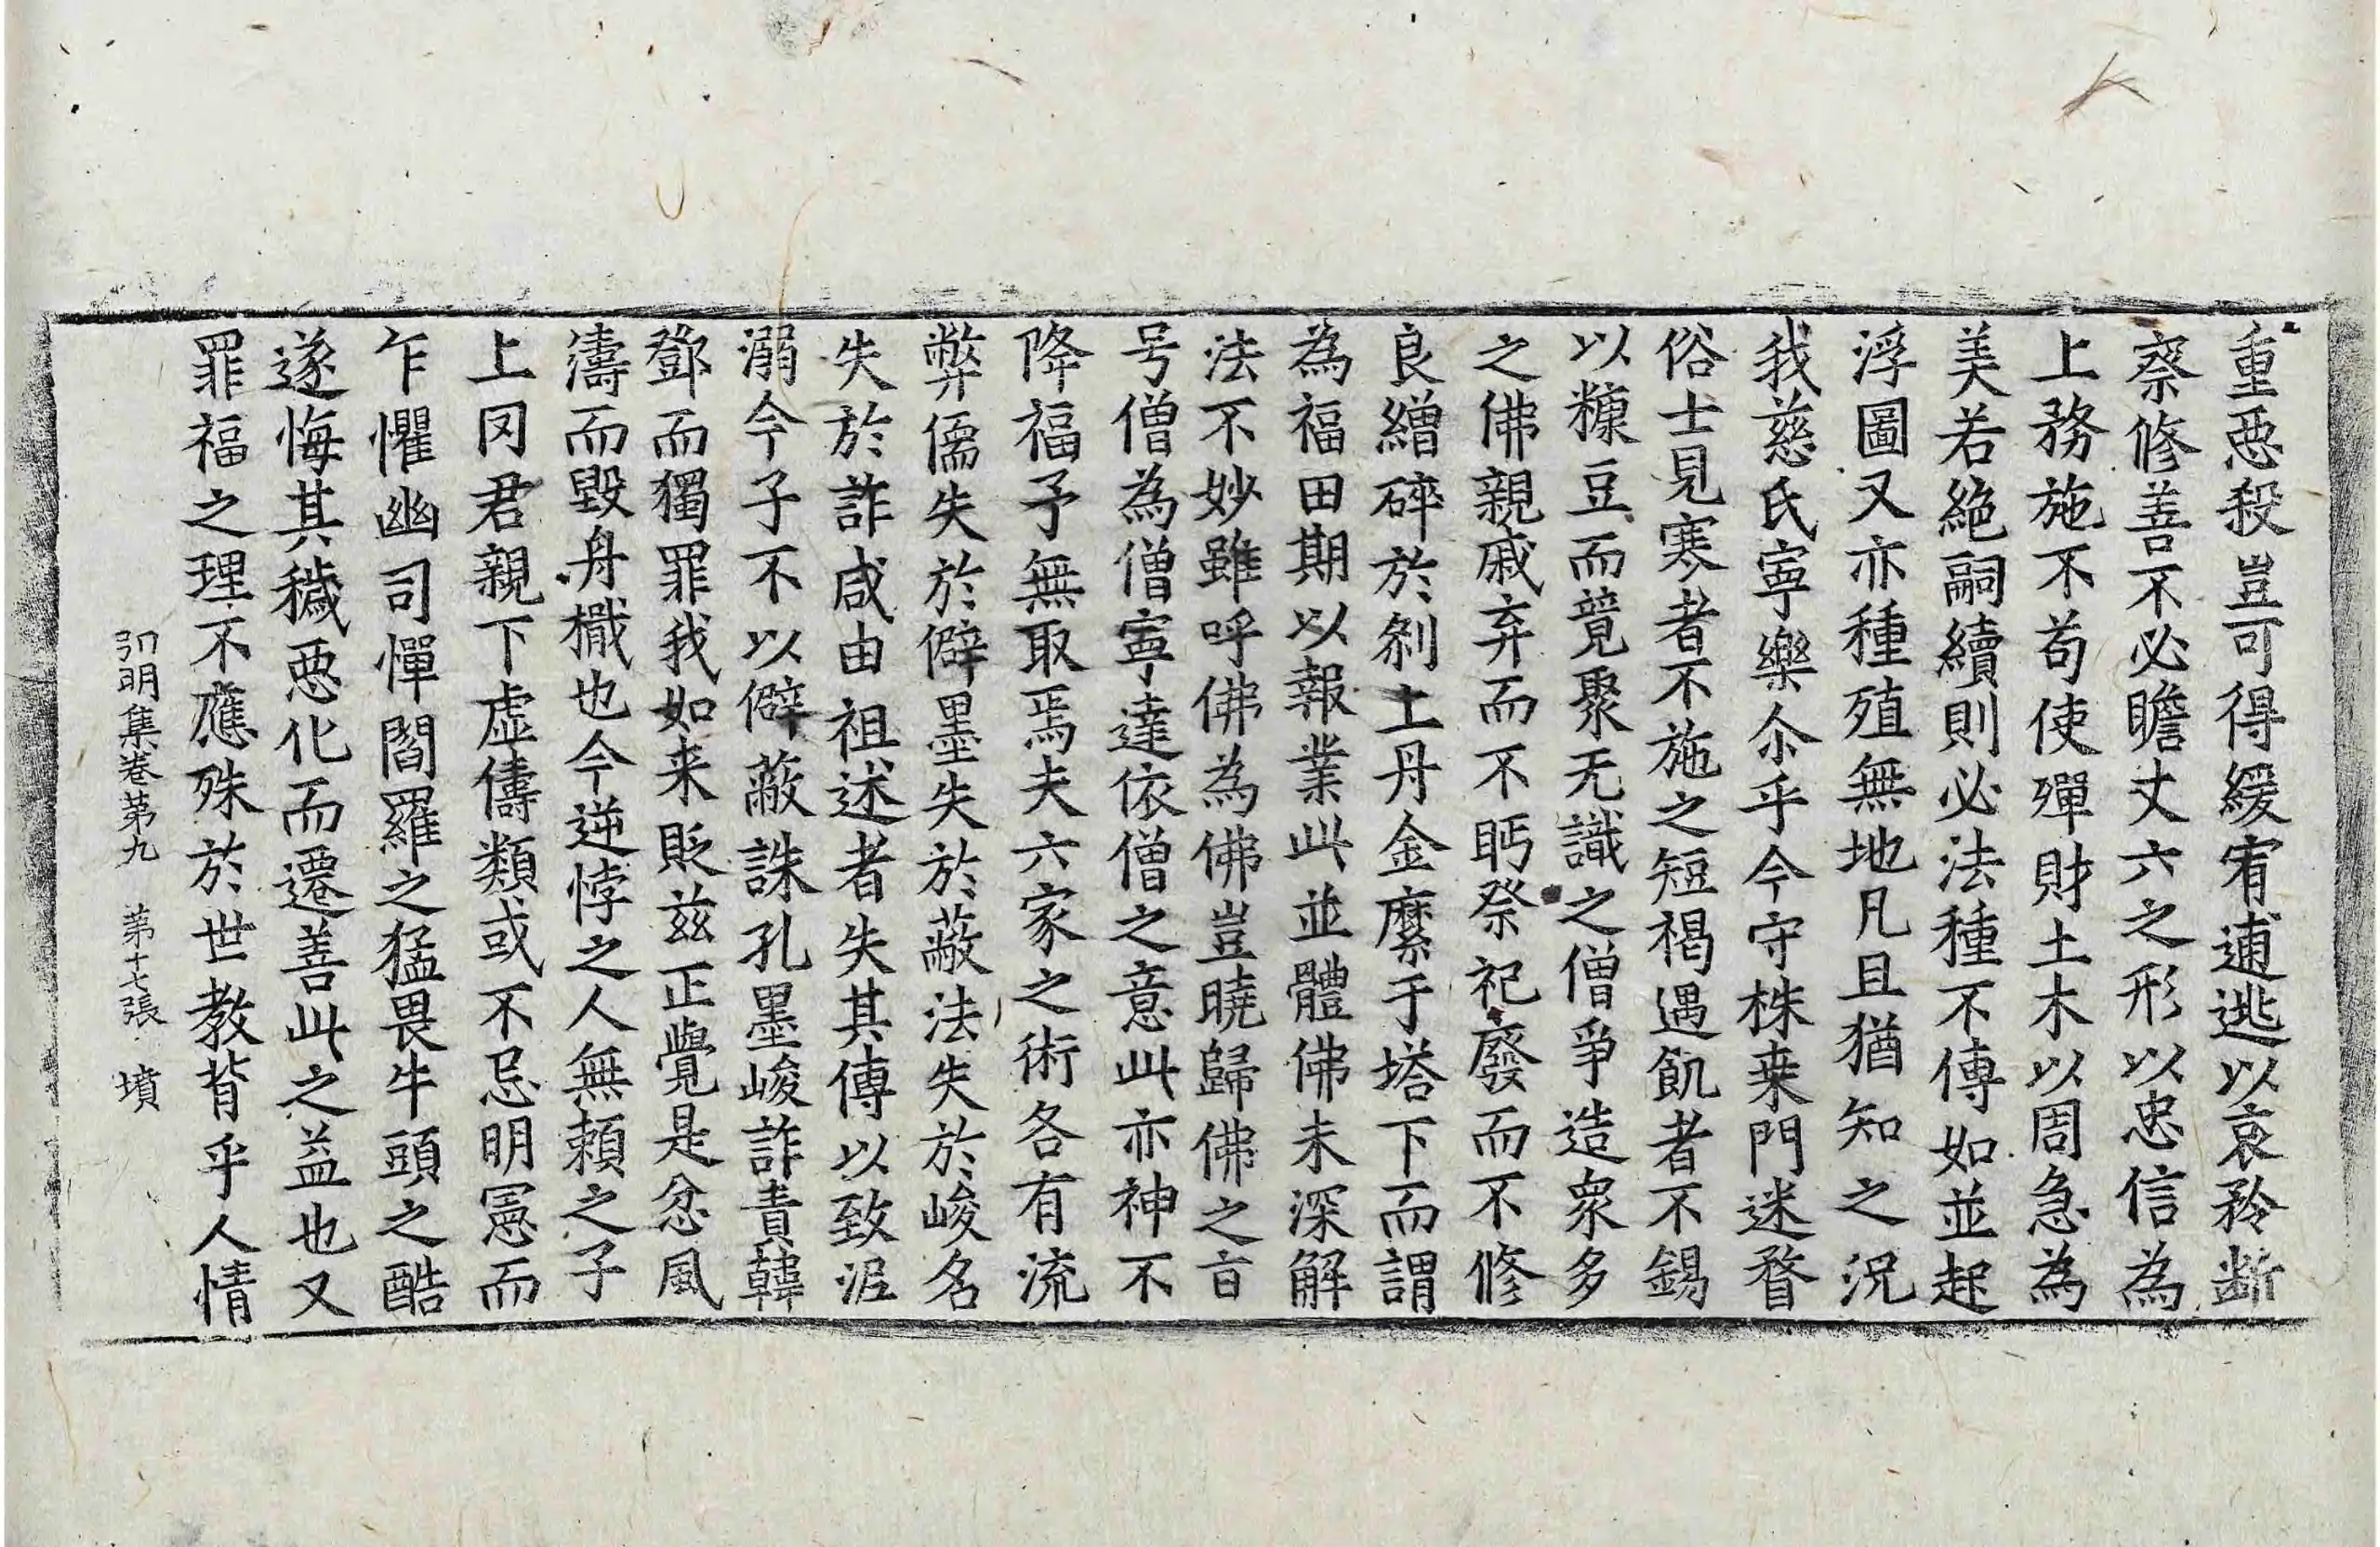 重惡殺豈可得緩宥逋逃以哀矜断
察修善不必瞻丈六之形以忠信為
上務施不苟使殫財土木以周急為
美若絶嗣續則必法種不傳如並起
浮圖又亦種殖無地凡且猶知之況
我慈氏寧樂尒乎今守株桒門迷瞀
俗士見寒者不施之短褐遇飢者不錫
以糠豆而競聚无識之僧爭造衆多
之佛親戚弃而不眄祭祀廢而不修
良繒碎於刹土丹金縻于塔下而謂
為福田期以報業此並體佛未深解
法不妙雖呼佛為佛豈曉歸佛之旨
号僧為僧寧達依僧之意此亦神不
降福予無取焉夫六家之術各有流
弊儒失於僻墨失於蔽法失於峻名
失於詐咸由祖述者失其傳以致泥
溺今子不以僻蔽誅孔墨峻詐責韓
鄧而獨罪我如来貶兹正覺是忿風
濤而毀舟檝也今逆悖之人無頼之子
上罔君親下虚儔類或不忌明憲而
乍懼幽司憚閻羅之猛畏牛頭之酷
遂悔其穢惡化而遷善此之益也又
罪福之理不應殊於世教背乎人情
弘明集卷第九 第十七張 墳